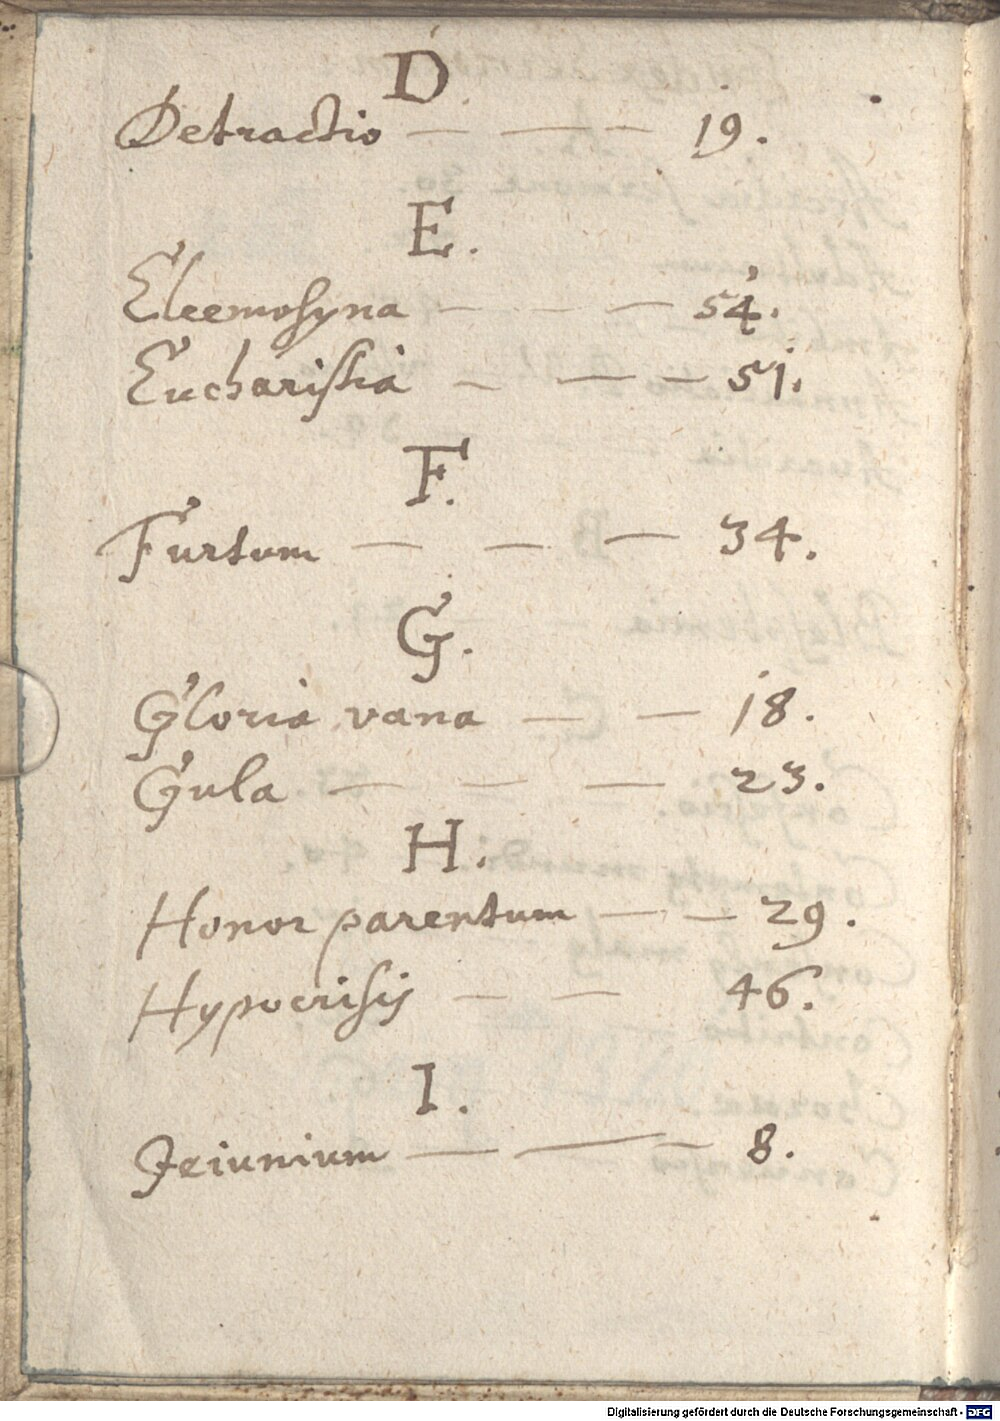 D.
Detractio — — — 19.
E.
Eleemosyna — — — 54.
Eucharistia — — — 51.
F.
Furtum — — — 34.
G.
Gloria vana — — 18.
Gula — — — 23.
H.
Honor parentum — — 29.
Hypocrisis — — 46.
I.
Jeiunium — — — 8.
Digitalisierung gefördert durch die Deutsche Forschungsgemeinschaft - DFG